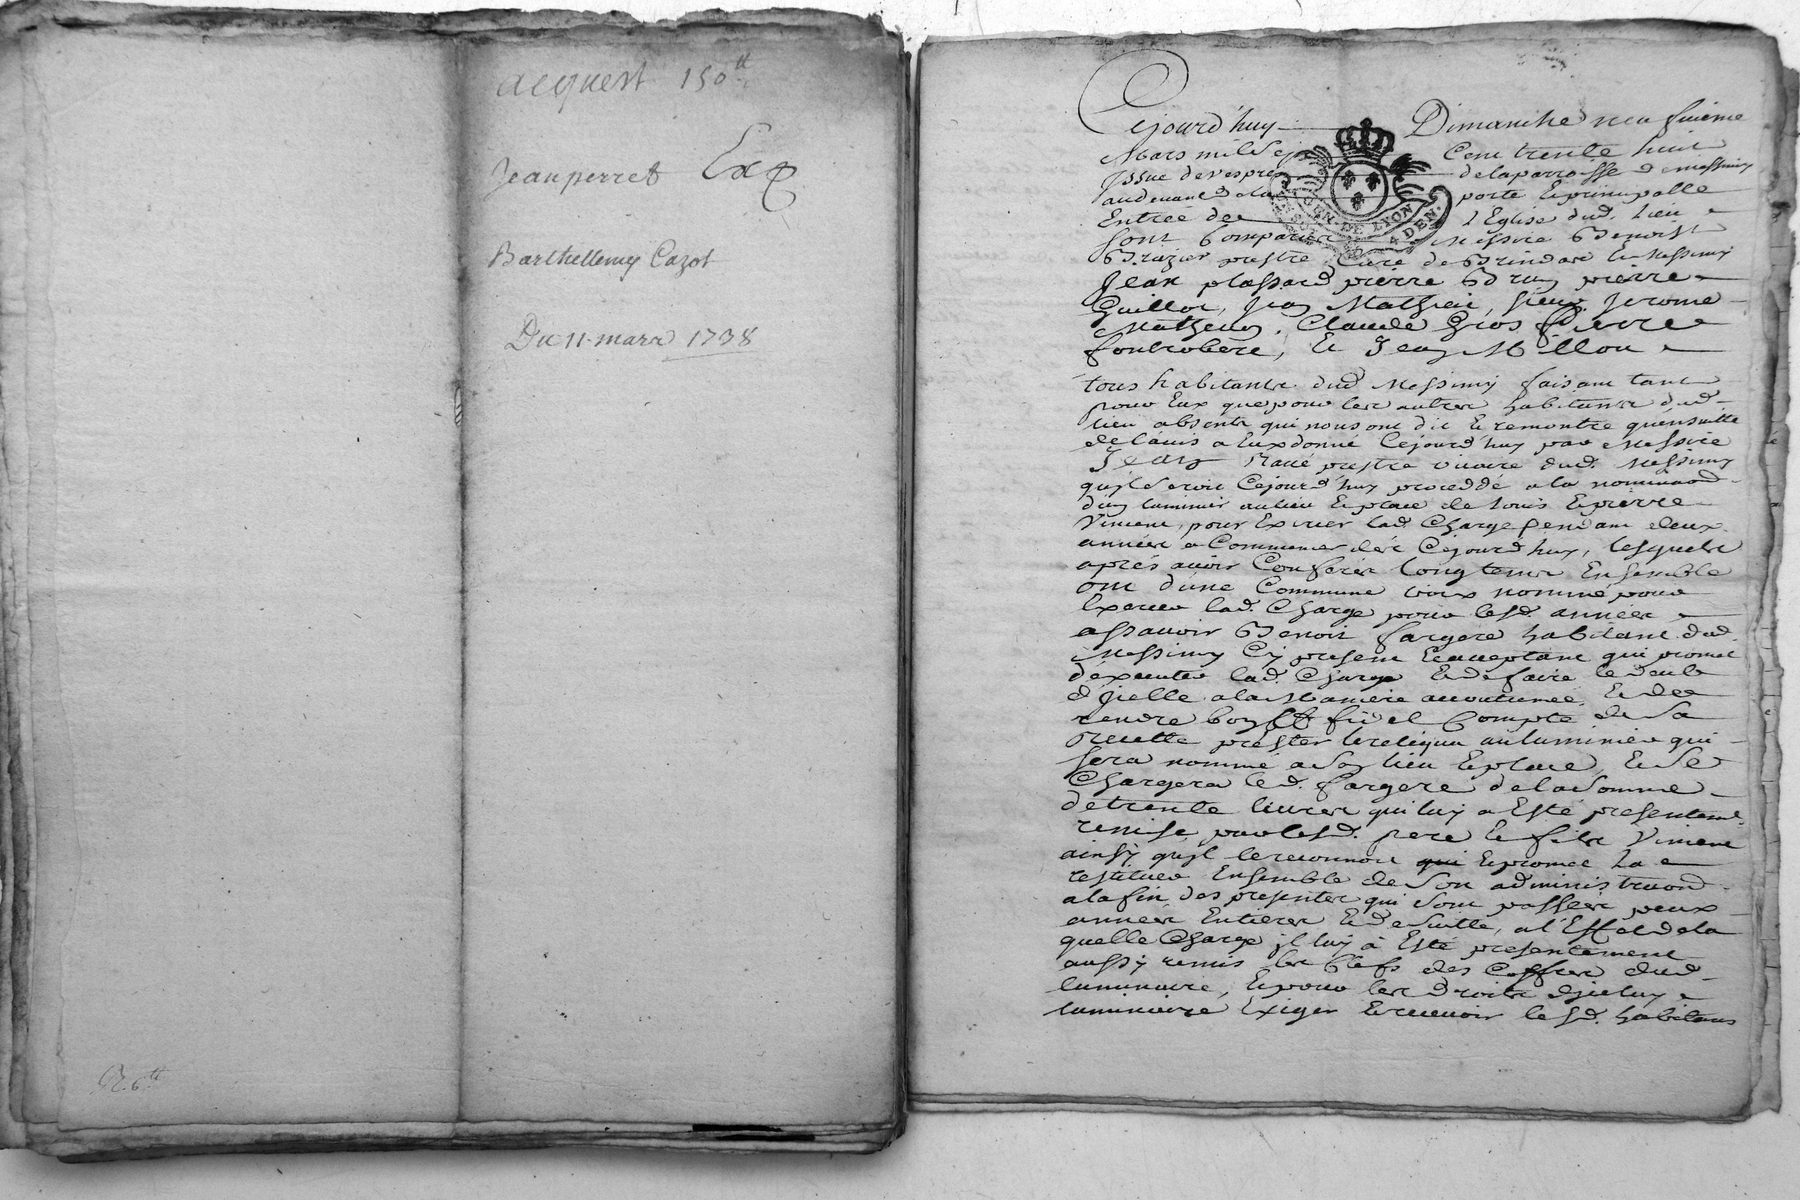 acquest 150 tt
Jean perret Exp
Barthellemy Cazot
Du 11 mars 1738
R 6 tt
Cejourd'huy Dimanche neufvieme
Mars mil sept Cent trente huit
Issue de vespres de la parroisse de messimy
audevant de la porte & principalle
Entrée de l'Eglise dud. lieu
GEN. DE LYON
4 DEN.
sont Comparus Messire Benoist
Brazier prestre Curé de Brindas & Messimy
Jean plassard pierre Brun pierre
Guillot, Jean Mathieu, sieur Jerome
Mathevon, Claude Gros pierre
fontrobere, & Jean Millou
tous habitants dud Messimy faisant tant
pour Eux que pour les autres habitants dud
lieu absents qui nous ont dit & remontré qu'ensuitte
de l'auis a Eux donné Cejourd'huy par Messire
Jean prestre vicaire dud. Messimy
qu'il seroit Cejourd'huy proceddé a la nominaon
d'un luminier au lieu & place de Louis & pierre
Vincent, pour Exercer lad. Charge pendant deux
années a Commencer dès Cejourd'huy, lesquels
aprés avoir Conferés longtems Ensemble
ont d'une Commune voix nommé pour
Exercer lad. Charge pour lesd. années
assavoir Benoit fargere habitant dud.
Messimy Cy present & acceptant qui promet
d'exercer lad. Charge & de faire le deub
d'jcelle a la Maniere accoutumée, & de
rendre bon & fidel Compte de sa
recette prester le reliqua au luminier qui
sera nommé a son lieu & place, & se
Chargera led. fargere de la somme
de trente livres qui luy a Esté presentemt.
remise par lesd. pere & fils Vincent
ainsy qu'jl le reconnoit & promet la
restituer Ensemble de son administraon
a la fin des presentes qui sont passées pour
années Entieres & de suitte, a l'Effet de la
quelle Charge jl luy à Esté presentement
aussy remis les Clefs des Coffres dud
luminaire, & pour les droits d'jceluy
luminaire Exiger & recevoir lesd. habitans